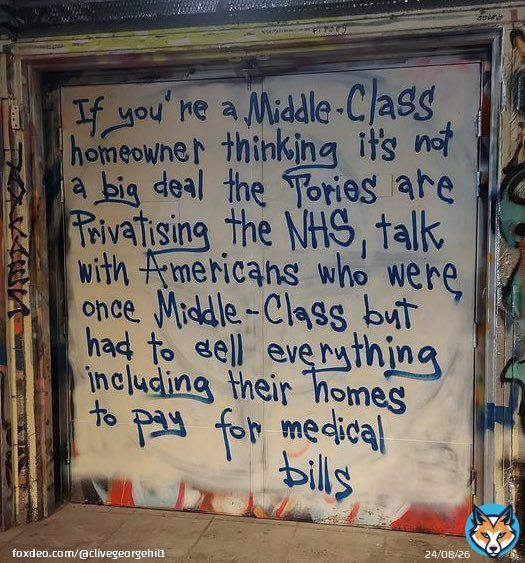 If you're a Middle-Class
homeowner thinking it's not
a big deal the Tories are
Privatising the NHS, talk
with Americans who were
once Middle-Class but
had to sell everything
including their homes
to pay for medical
bills
foxdeo.com/@clivegeorgehil1
24/08/26